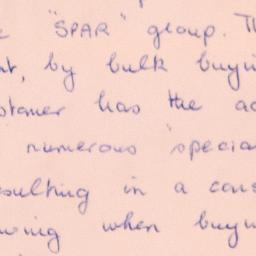 "SPAR" group. Th
by bulk buyin
stomer has the ad
numerous "specia
sulting in a cons
wing when buyin